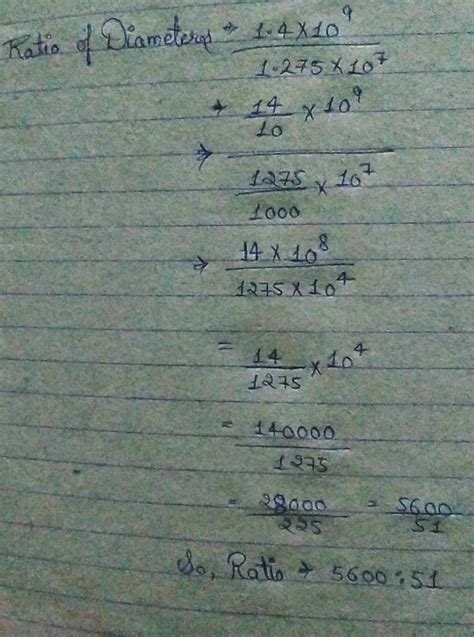 Ratio of Diameters → 1.4×10⁹ / 1.275×10⁷
⇒ 14/10 × 10⁹ / 1275/1000 × 10⁷
⇒ 14×10⁸ / 1275×10⁴
= 14/1275 × 10⁴
= 140000/1275
= 28000/225 = 5600/51
So, Ratio → 5600:51